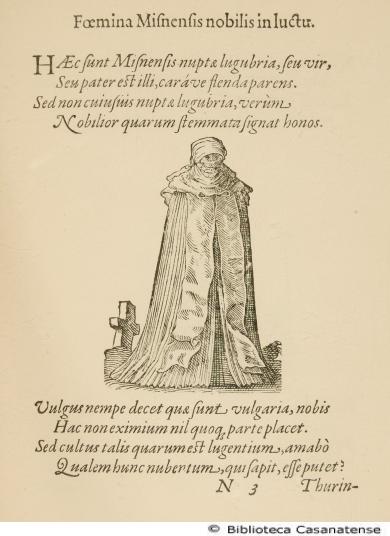 Fœmina Misnensis nobilis in luctu.
HÆc sunt Misnensis nuptæ lugubria, seu vir,
Seu pater est illi, caráve flenda parens.
Sed non cuiusuis nuptæ lugubria, verùm
Nobilior quarum stemmata signat honos.
Vulgus nempe decet quæ sunt vulgaria, nobis
Hac non eximium nil quoq; parte placet.
Sed cultus talis quarum est lugentium, amabò
Qualem hunc nubertum, qui sapit, esse putet?
N 3 Thurin-
© Biblioteca Casanatense